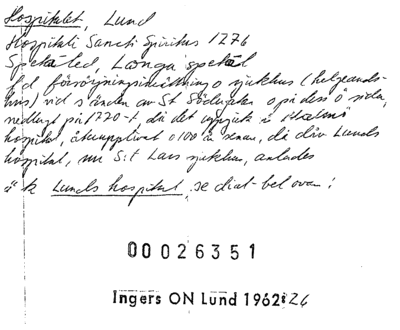 Hospitalet, Lund
Hospitali Sancti Spiritus 1276
Spetáled, Långa spetál
f d försörjningsinrättning o sjukhus (helgeands-
hus) vid s änden av St Södergatan o på dess ö sida,
nedlagt på 1720-t, då det uppgick i Malmö
hospital, återupplivat o 100 år senare, då dåv Lunds
hospital, nu S:t Lars sjukhus, anlades
ä k Lunds hospital, se dial-bel ovan!
00026351
Ingers ON Lund 1962:26